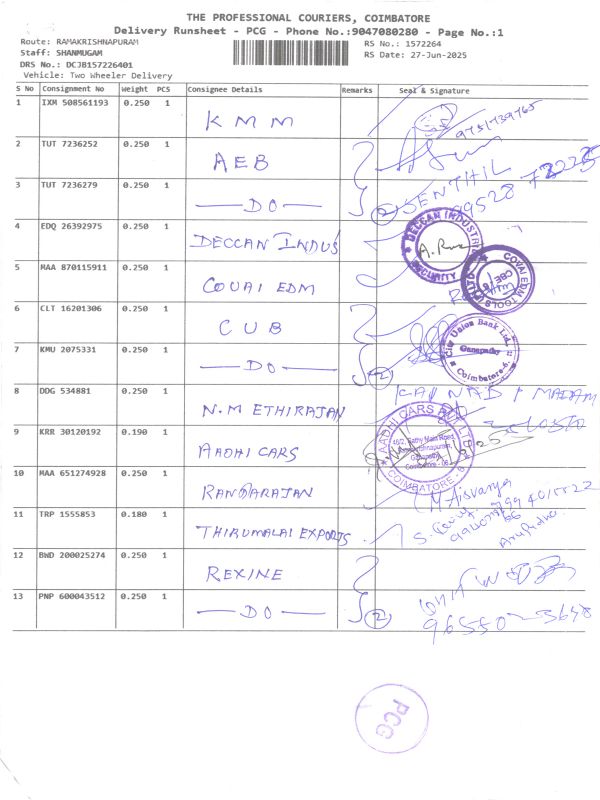 THE PROFESSIONAL COURIERS, COIMBATORE
Delivery Runsheet - PCG - Phone No.:9047080280 - Page No.:1
Route: RAMAKRISHNAPURAM
RS No.: 1572264
Staff: SHANMUGAM
RS Date: 27-Jun-2025
DRS No.: DCJB157226401
Vehicle: Two Wheeler Delivery
S No Consignment No Weight PCS Consignee Details Remarks Seal & Signature
1 IXM 508561193 0.250 1 KMM 9751739765
2 TUT 7236252 0.250 1 AEB
3 TUT 7236279 0.250 1 —DO— 2 SENTHIL
4 EDQ 26392975 0.250 1 DECCAN INDUS DECCAN INDUSTRIES SECURITY
5 MAA 870115911 0.250 1 COUAI EDM COVAI EDM TOOLS
6 CLT 16201306 0.250 1 CUB City Union Bank Ltd.
7 KMU 2075331 0.250 1 —DO— 2 Ganapathy Coimbatore-6.
8 DDG 534881 0.250 1 N.M ETHIRAJAN MADAM
9 KRR 30120192 0.190 1 AADHI CARS AADHI CARS PVT LTD
Sathy Main Road,
Ramakrishnapuram,
Ganapathy
Coimbatore - 06
COIMBATORE - 6
10 MAA 651274928 0.250 1 RANGARAJAN Aisvarya
11 TRP 1555853 0.180 1 THIRUMALAI EXPORTS.
12 BWD 200025274 0.250 1 REXINE
13 PNP 600043512 0.250 1 —DO— 2
PCG